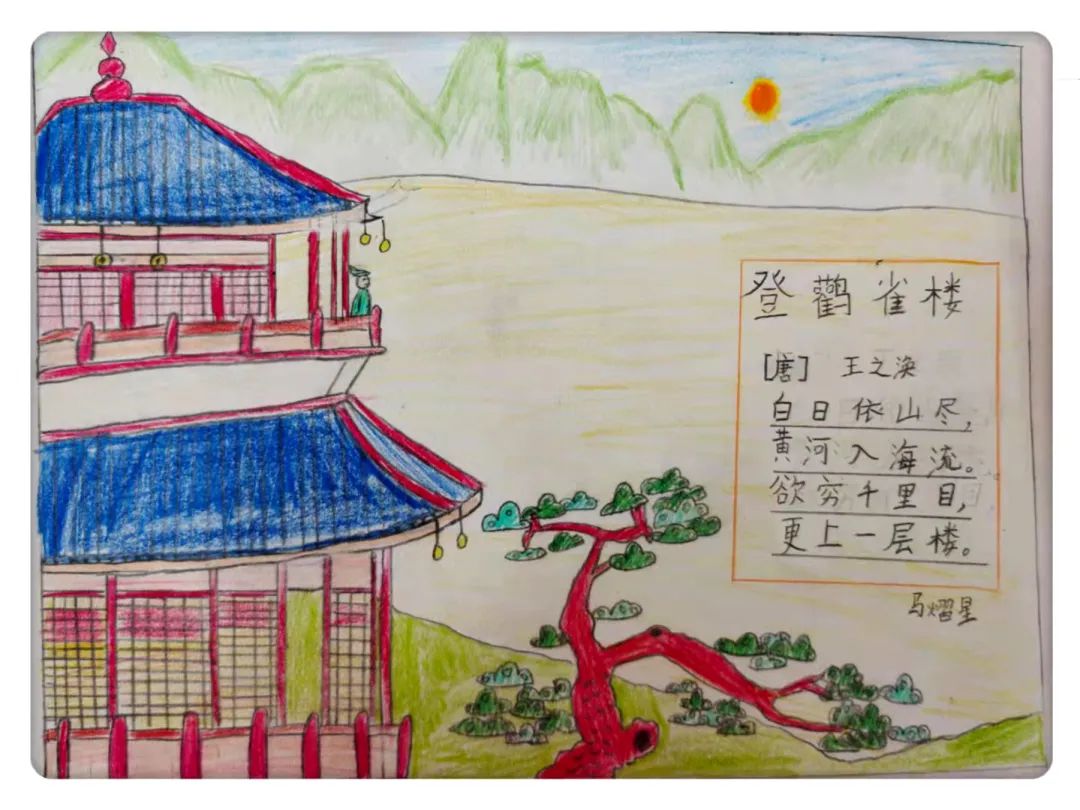 登鸛雀楼
[唐] 王之涣
白日依山尽,
黄河入海流。
欲穷千里目,
更上一层楼。
马熠星